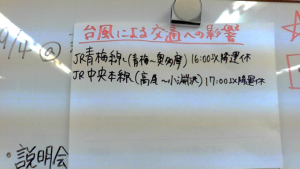 台風による交通への影響
JR青梅線(青梅〜奥多摩) 16:00以降運休
JR中央本線(高尾〜小淵沢) 17:00以降運休
・説明会